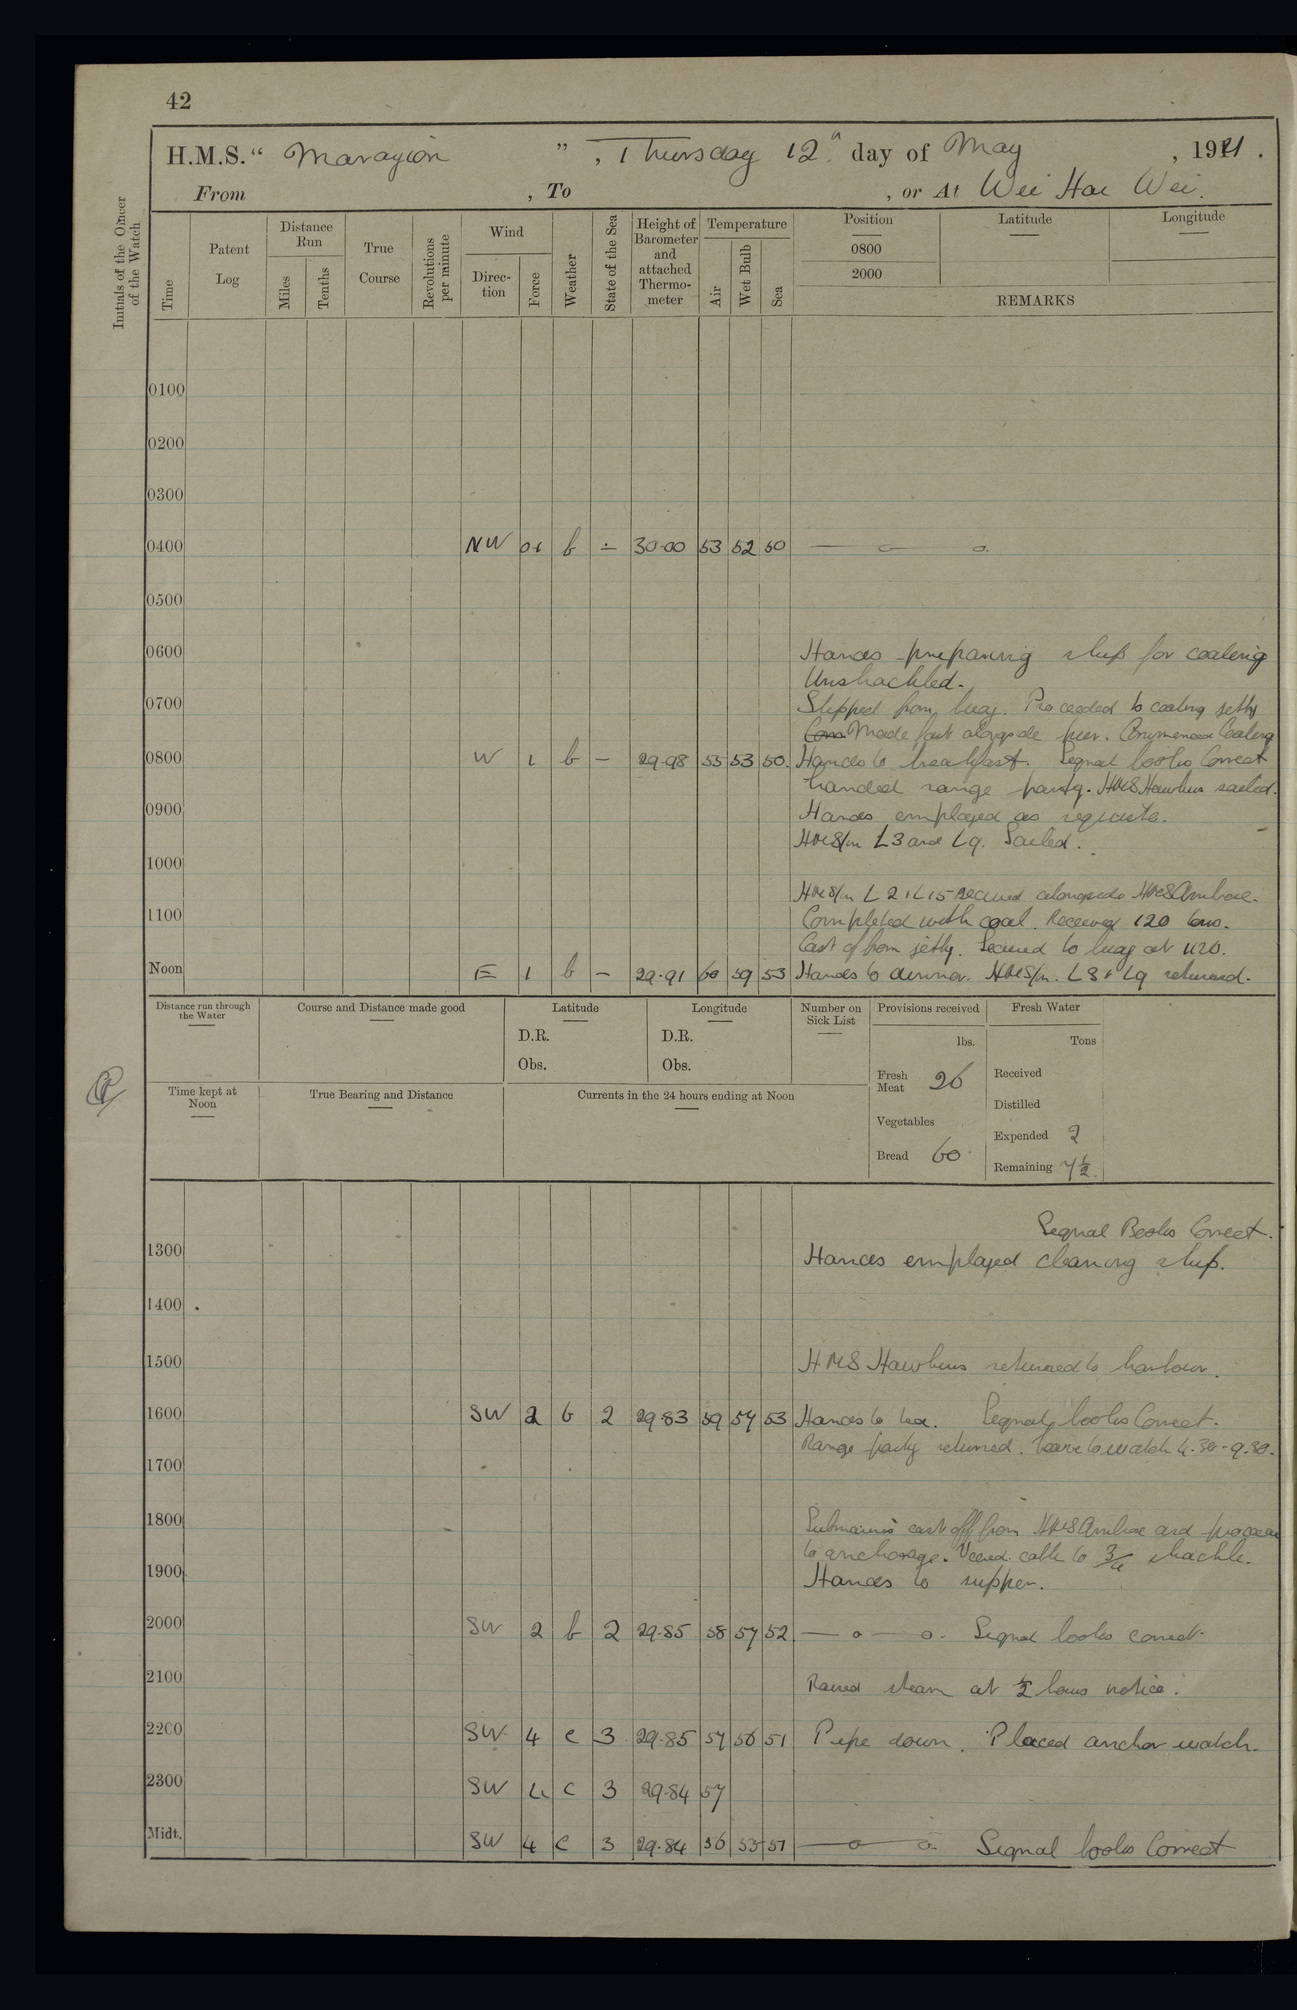 42
H.M.S. " Marazion " , Thursday 12th day of May , 1921 .
From , To , or At Wei Hai Wei.
Initials of the Officer of the Watch
Time
Patent Log
Distance Run
Miles
Tenths
True Course
Revolutions per minute
Wind
Direction
Force
Weather
State of the Sea
Height of Barometer and attached Thermometer
Temperature
Air
Wet Bulb
Sea
Position
0800
2000
Latitude
Longitude
REMARKS
0100
0200
0300
0400 NW 0-1 b - 30.00 53 52 50 — o — o.
0500
0600 Hands preparing ship for coaling
Unshackled.
0700 Slipped from buoy. Proceeded to coaling jetty
Made fast alongside pier. Commenced Coaling
0800 W 1 b - 29.98 55 53 50. Hands to breakfast. Signal books Correct
Landed range party. HMS Hawkins sailed.
0900 Hands employed as requisite.
HMS/m L3 and L9. Sailed.
1000
HMS/m L2, L15 secured alongside HMS Ambrose.
1100 Completed with coal. Received 120 tons.
Cast off from jetty. Secured to buoy at 1120.
Noon E 1 b - 29.91 60 59 53 Hands to dinner. HMS/m. L3 + L9 returned.
Distance run through the Water
Course and Distance made good
Latitude
D.R.
Obs.
Longitude
D.R.
Obs.
Number on Sick List
Provisions received
lbs.
Fresh Meat 26
Vegetables
Bread 60
Fresh Water
Tons
Received
Distilled
Expended 2
Remaining 7½.
Time kept at Noon
True Bearing and Distance
Currents in the 24 hours ending at Noon
Signal Books Correct.
1300 Hands employed cleaning ship.
1400
1500 HMS Hawkins returned to harbour.
1600 SW 2 b 2 29.83 59 57 53 Hands to tea. Signal books Correct.
Range party returned. Leave to watch 4.30-9.30.
1700
1800 Submarines cast off from HMS Ambrose and proceed
to anchorage. Veered cable to 3/4 shackle.
1900 Hands to supper.
2000 SW 2 b 2 29.85 58 57 52 — o — o. Signal books correct.
2100 Raised steam at ½ hours notice.
2200 SW 4 c 3 29.85 57 56 51 Pipe down. Placed anchor watch.
2300 SW 4 c 3 29.84 57
Midt. SW 4 c 3 29.84 56 55 51 — o — o. Signal books Correct